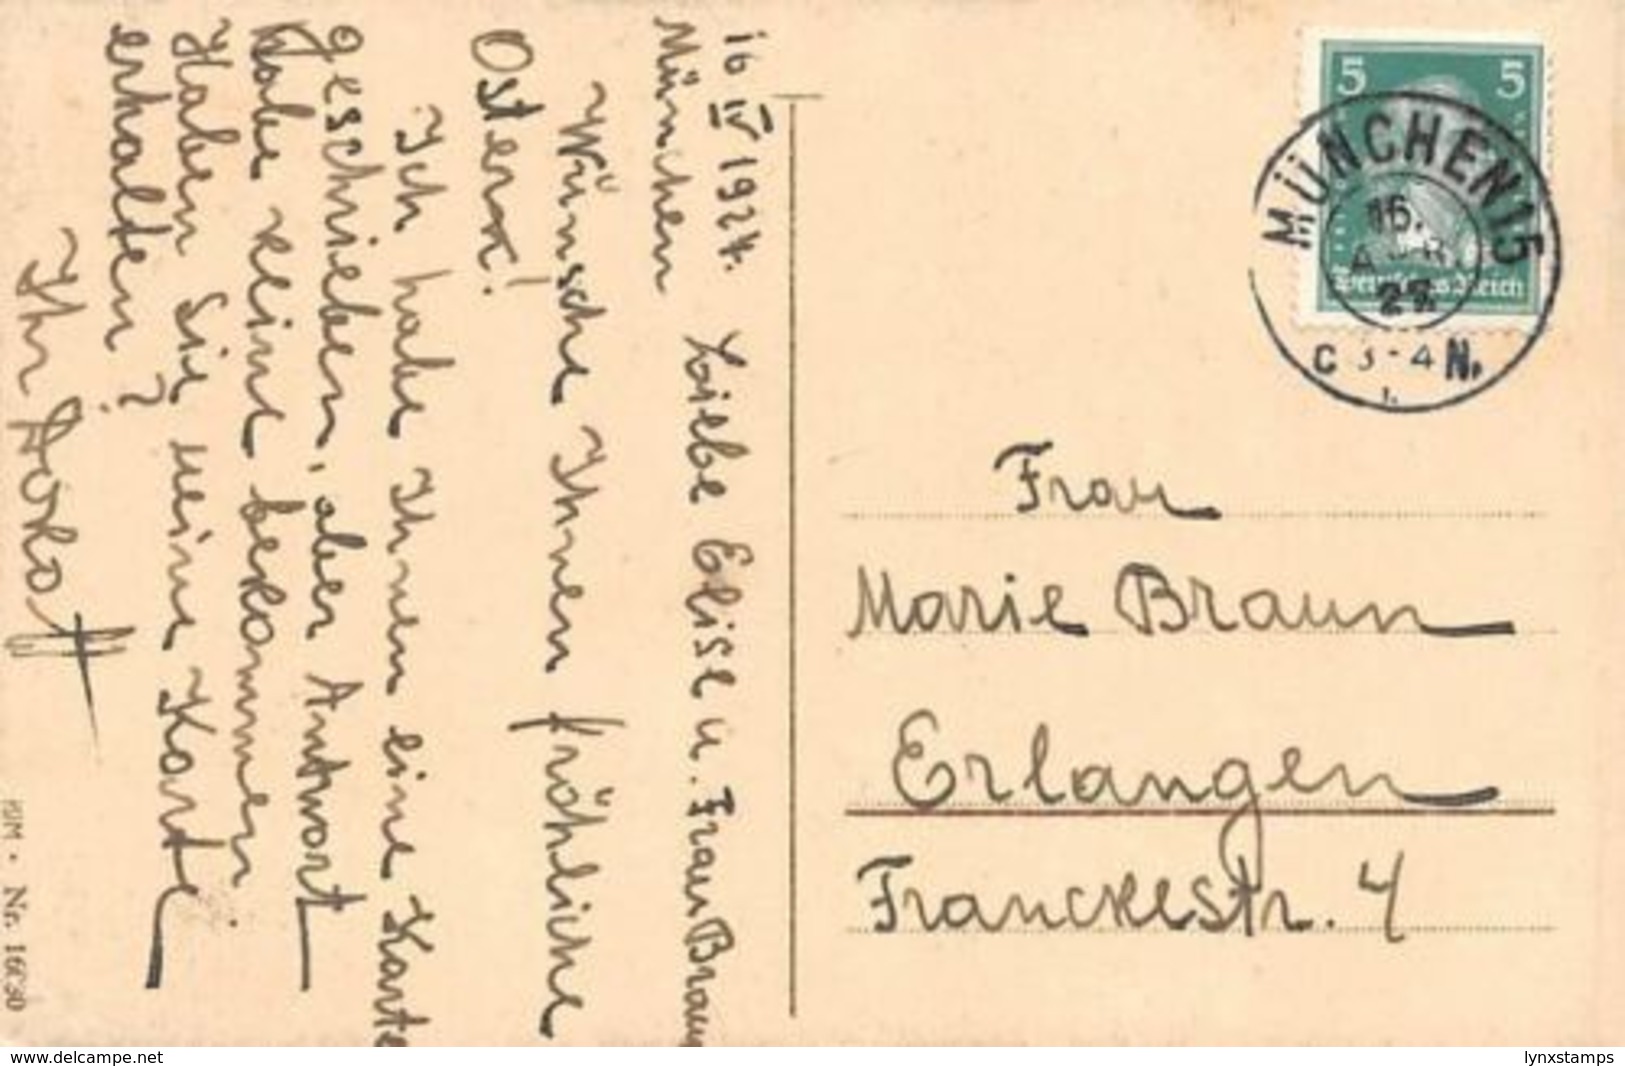 16 IV 1927.
München
Liebe Elise u. Frau Braun
Wünsche Ihnen fröhliche
Ostern!
Ich habe Ihnen eine Karte
geschrieben, aber Antwort
habe keine bekommen.
Haben Sie meine Karte
erhalten?
Ihr
Nr. 16080
5 5
Deutsches Reich
MÜNCHEN 15
16.
APR.
27.
C 3-4 N.
Frau
Marie Braun
Erlangen
Franckestr. 4
www.delcampe.net
lynxstamps